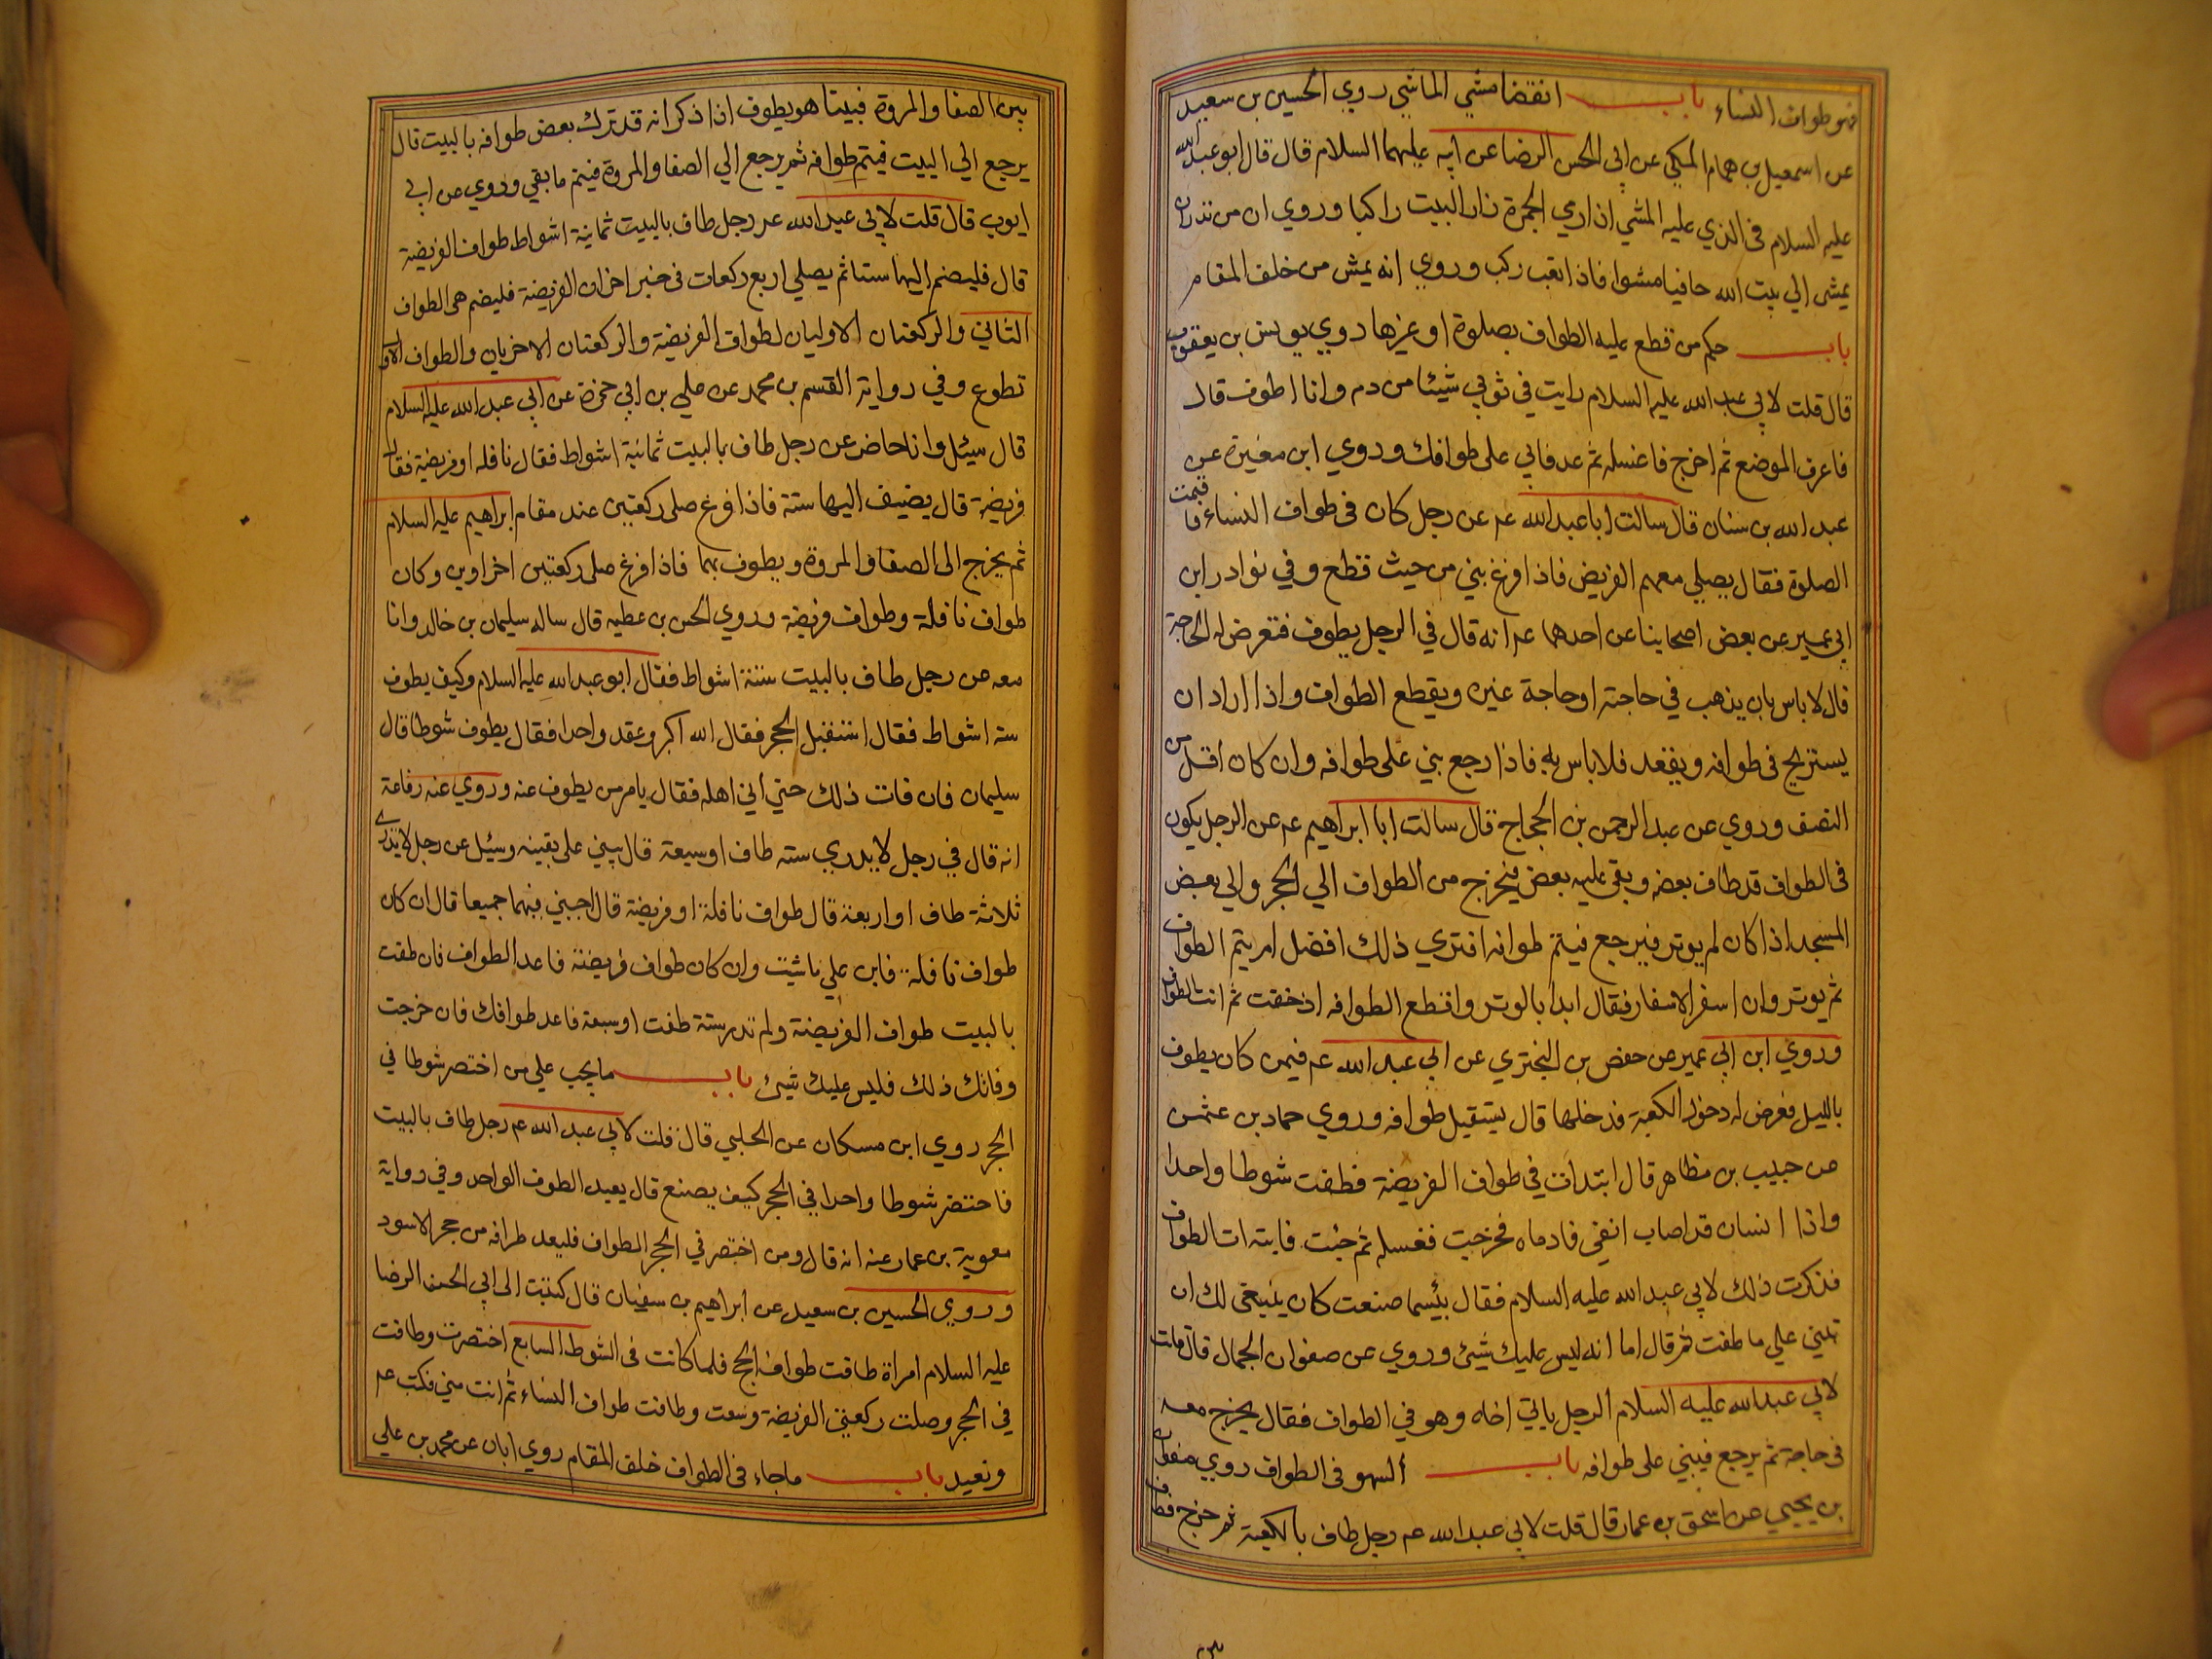 فهو طواف النساء باب انقضا مشي الماشي روي الحسين بن سعيد
عن اسمعيل بن همام المكي عن ابي الحسن الرضا عن ابيه عليهما السلام قال قال ابو عبد الله
عليه السلام في الذي عليه المشي اذا رمي الجمرة زار البيت راكبا وروي ان من نذر ان
يمشي الي بيت الله حافيا مشوا فاذا تعب ركب وروي انه يمش من خلف المقام
باب حكم من قطع عليه الطواف بصلوة او غيرها روي يونس بن يعقوب
قال قلت لابي عبد الله عليه السلام رايت في ثوبي شيئا من دم وانا اطوف قال
فاعرف الموضع ثم اخرج فاغسله ثم عد فابي على طوافك وروي ابن مغيرة عن
عبد الله بن سنان قال سالت ابا عبد الله عم عن رجل كان في طواف النساء فاقيمت
الصلوة فقال يصلي معهم الفريض فاذا فرغ بني من حيث قطع وفي نوادر ابن
ابي عمير عن بعض اصحابنا عن احدهما عم انه قال في الرجل يطوف فتعرض له الحاجة
قال لا باس بان يذهب في حاجته او حاجة غيره ويقطع الطواف واذا اراد ان
يستريح في طوافه ويقعد فلا باس به فاذا رجع بني على طوافه وان كان اقل من
النصف وروي عن عبد الرحمن بن الحجاج قال سالت ابا ابراهيم عم عن الرجل يكون
في الطواف قد طاف بعضه وبقي عليه بعض فيخرج من الطواف الي الحجر والي بعض
المسجد اذا كان لم يوتر فيرجع فيتم طوافه افتري ذلك افضل ام يتم الطواف
ثم يوتر وان اسفر الاسفار فقال ابدا بالوتر واقطع الطوافه اذ خفت ثم انت الطواف
وروي ابن ابي عمير عن حفص بن البختري عن ابي عبد الله عم فيمن كان يطوف
بالليل فعرض له دخول الكعبة فدخلها قال يستقيل طوافه وروي حماد بن عثمن
عن حبيب بن مظاهر قال ابتدات في طواف الفريضة فطفت شوطا واحدا
واذا انسان قد اصاب انفي فادماه فخرجت فغسله ثم جئت فابتدات الطواف
فذكرت ذلك لابي عبد الله عليه السلام فقال بئسما صنعت كان ينبغي لك ان
تبني علي ما طفت ثم قال اما انه ليس عليك شيئ وروي عن صفوان الجمال قال قلت
لابي عبد الله عليه السلام الرجل ياتي اخاه وهو في الطواف فقال يخرج معه
في حاجة ثم يرجع فيبني على طوافه باب السهو في الطواف روي صفوان
بن يحيي عن اسحق بن عمار قال قلت لابي عبد الله عم رجل طاف بالكعبة ثم خرج فطاف
بين الصفا والمروة فبينا هو يطوف اذا ذكر انه قد ترك بعض طوافه بالبيت قال
يرجع الي البيت فيتم طوافه ثم يرجع الي الصفا والمروة فيتم ما بقي وروي عن ابي
ايوب قال قلت لابي عبد الله عم رجل طاف بالبيت ثمانية اشواط طواف الفريضة
قال فليضم اليها ستا ثم يصلي اربع ركعات في خبر اخر ان الفريضة فليضم هي الطواف
الثاني والركعتان الاوليان لطواف الفريضة والركعتان الاخريان والطواف الاول
تطوع وفي رواية القسم بن محمد عن علي بن ابي حمزة عن ابي عبد الله عليه السلام
قال سيئل وانا حاض عن رجل طاف بالبيت ثمانية اشواط فقال نافله او فريضة فقال
فريضة قال يضيف اليها ستة فاذا فرغ صلى ركعتين عند مقام ابراهيم عليه السلام
ثم يخرج الى الصفا والمروة ويطوف بهما فاذا فرغ صلى ركعتين اخراوين وكان
طواف نافلة وطواف فريضة وروي الحسن بن عطيه قال ساله سليمان بن خالد وانا
معه عن رجل طاف بالبيت ستة اشواط فقال ابو عبد الله عليه السلام وكيف يطوف
سته اشواط فقال استقبل الحجر فقال الله اكبر وعقد واحدا فقال يطوف شوطا قال
سليمان فان فات ذلك حتي اتي اهله فقال يامر من يطوف عنه وروي عنه رفاعة
انه قال في رجل لا يدري سته طاف او سبعة قال يبني على يقينه وسيئل عن رجل لا يدري
ثلاثة طاف او اربعة قال طواف نافلة او فريضة قال اجبني فيهما جميعا قال ان كان
طواف نافلة فابن علي ما شيت وان كان طواف فريضة فاعد الطواف فان طفت
بالبيت طواف الفريضة ولم تدر ستة طفت او سبعة فاعد طوافك فان خرجت
وفاتك ذلك فليس عليك شيئ باب ما يجب علي من اختصر شوطا في
الحجر روي ابن مسكان عن الحلبي قال قلت لابي عبد الله عم رجل طاف بالبيت
فاختصر شوطا واحدا في الحجر كيف يصنع قال يعيد الطوف الواحد وفي رواية
معوية بن عمار عنه انه قال ومن اختصر في الحجر الطواف فليعد طرافه من حجر الاسود
وروي الحسين بن سعيد عن ابراهيم بن سفيان قال كتبت الى ابي الحسن الرضا
عليه السلام امراة طافت طواف الحج فلما كانت في الشوط السابع اختصرت وطافت
في الحجر وصلت ركعتي الفريضة وسعت وطافت طواف النساء ثم اتت مني فكتب عم
وتعيد باب ماجاء في الطواف خلف المقام روي ابان عن محمد بن علي